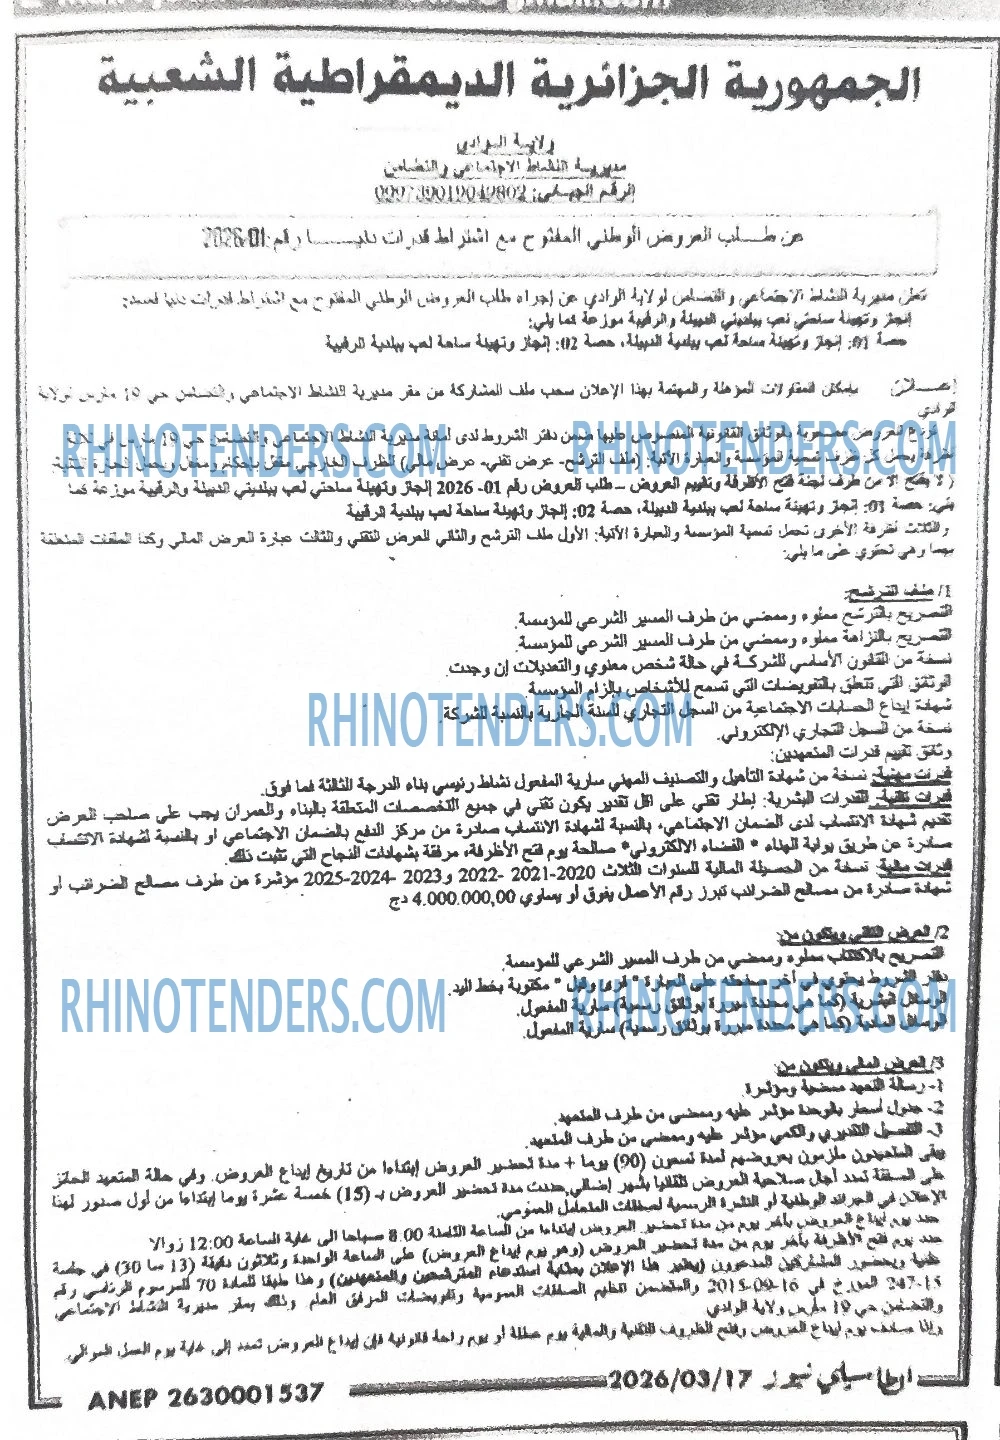 الجمهورية الجزائرية الديمقراطية الشعبية
ولاية الوادي
مديرية النشاط الاجتماعي والتضامن
الرقم الجبائي: 099739019049802
عن طلب العروض الوطني المفتوح مع اشتراط قدرات دنيا رقم: 2026/01
تعلن مديرية النشاط الاجتماعي والتضامن لولاية الوادي عن إجراء طلب العروض الوطني المفتوح مع اشتراط قدرات دنيا
إنجاز وتهيئة ساحتي لعب ببلديتي الدبيلة والرقيبة موزعة كما يلي:
حصة 01: إنجاز وتهيئة ساحة لعب ببلدية الدبيلة، حصة 02: إنجاز وتهيئة ساحة لعب ببلدية الرقيبة
بإمكان المقاولات المؤهلة والمهتمة بهذا الإعلان سحب ملف المشاركة من مقر مديرية النشاط الاجتماعي والتضامن حي 19 مارس لولاية
الوادي
العروض مصحوبة بالوثائق القانونية المنصوص عليها ضمن دفتر الشروط لدى أمانة مديرية النشاط الاجتماعي والتضامن حي 19 مارس في ثلاثة
RHINOTENDERS.COM RHINOTENDERS.COM
أظرفة يحمل كل ظرف تسمية المؤسسة والعبارة الآتية: (ملف الترشح- عرض تقني- عرض مالي) الظرف الخارجي مقفل بإحكام ويحمل العبارة التالية:
( لا يفتح الا من طرف لجنة فتح الأظرفة وتقييم العروض – طلب العروض رقم 01- 2026 إنجاز وتهيئة ساحتي لعب ببلديتي الدبيلة والرقيبة موزعة كما
يلي: حصة 01: إنجاز وتهيئة ساحة لعب ببلدية الدبيلة، حصة 02: إنجاز وتهيئة ساحة لعب ببلدية الرقيبة
والثلاث أظرفة الأخرى تحمل تسمية المؤسسة والعبارة الآتية: الأول ملف الترشح والثاني العرض التقني والثالث عبارة العرض المالي وكذا الملفات المتعلقة
بهما وهي تحتوي على ما يلي:
1/ ملف الترشح:
التصريح بالترشح مملوء وممضي من طرف المسير الشرعي للمؤسسة.
التصريح بالنزاهة مملوء وممضي من طرف المسير الشرعي للمؤسسة.
نسخة من القانون الأساسي للشركة في حالة شخص معنوي والتعديلات إن وجدت.
الوثائق التي تتعلق بالتفويضات التي تسمح للأشخاص بإلزام المؤسسة.
شهادة إيداع الحسابات الاجتماعية من السجل التجاري للسنة الجارية بالنسبة للشركة.
RHINOTENDERS.COM
نسخة من السجل التجاري الإلكتروني.
وثائق تقييم قدرات المتعهدين:
قدرات مهنية: نسخة من شهادة التأهيل والتصنيف المهني سارية المفعول نشاط رئيسي بناء الدرجة الثالثة فما فوق.
قدرات تقنية: القدرات البشرية: إطار تقني على اقل تقدير يكون تقني في جميع التخصصات المتعلقة بالبناء والعمران يجب على صاحب العرض
تقديم شهادة الانتساب لدى الضمان الاجتماعي، بالنسبة لشهادة الانتساب صادرة من مركز الدفع بالضمان الاجتماعي او بالنسبة لشهادة الانتساب
صادرة عن طريق بوابة الهناء " الفضاء الالكتروني" صالحة يوم فتح الأظرفة، مرفقة بشهادات النجاح التي تثبت ذلك.
قدرات مالية: نسخة من الحصيلة المالية للسنوات الثلاث 2020-2021 -2022 و2023 -2024-2025 مؤشرة من طرف مصالح الضرائب أو
شهادة صادرة من مصالح الضرائب تبرز رقم الأعمال يفوق أو يساوي 4.000.000,00 دج
2/ العرض التقني ويتكون من:
التصريح بالاكتتاب مملوء وممضي من طرف المسير الشرعي للمؤسسة.
دفتر الشروط يحتوي في أخر صفحته على العبارة " قرئ وقبل " مكتوبة بخط اليد.
RHINOTENDERS.COM RHINOTENDERS.COM
الوسائل البشرية (كما هي محددة مبررة بوثائق رسمية) سارية المفعول.
الوسائل المادية (كما هي محددة مبررة بوثائق رسمية) سارية المفعول.
3/ العرض المالي ويتكون من:
1- رسالة التعهد ممضية ومؤشرة.
2- جدول أسعار بالوحدة مؤشر عليه وممضي من طرف المتعهد.
3- التفصيل التقديري والكمي مؤشر عليه وممضي من طرف المتعهد.
يبقى المتعهدون ملزمون بعروضهم لمدة تسعون (90) يوما + مدة تحضير العروض إبتداءا من تاريخ إيداع العروض. وفي حالة المتعهد الحائز
على الصفقة تمدد آجال صلاحية العروض تلقائيا بشهر إضافي. حددت مدة تحضير العروض بـ (15) خمسة عشرة يوما إبتداءا من أول صدور لهذا
الإعلان في الجرائد الوطنية أو النشرة الرسمية لصفقات المتعامل العمومي.
حدد يوم ايداع العروض بآخر يوم من مدة تحضير العروض إبتداءا من الساعة الثامنة 8.00 صباحا الى غاية الساعة 12:00 زوالا
حدد يوم فتح الأظرفة بآخر يوم من مدة تحضير العروض (وهو يوم إيداع العروض) على الساعة الواحدة وثلاثون دقيقة (13 سا 30) في جلسة
علنية وبحضور المشاركين المدعوون (يعتبر هذا الإعلان بمثابة استدعاء للمترشحين والمتعهدين) وهذا طبقا للمادة 70 للمرسوم الرئاسي رقم
247-15 المؤرخ في 16-09-2015 والمتضمن تنظيم الصفقات العمومية وتفويضات المرفق العام وذلك بمقر مديرية النشاط الاجتماعي
والتضامن حي 19 مارس ولاية الوادي
وإذا صادف يوم إيداع العروض وفتح الظروف التقنية والمالية يوم عطلة أو يوم راحة قانونية فإن إيداع العروض تمدد إلى غاية يوم العمل الموالي.
ANEP 2630001537 2026/03/17 نيوز